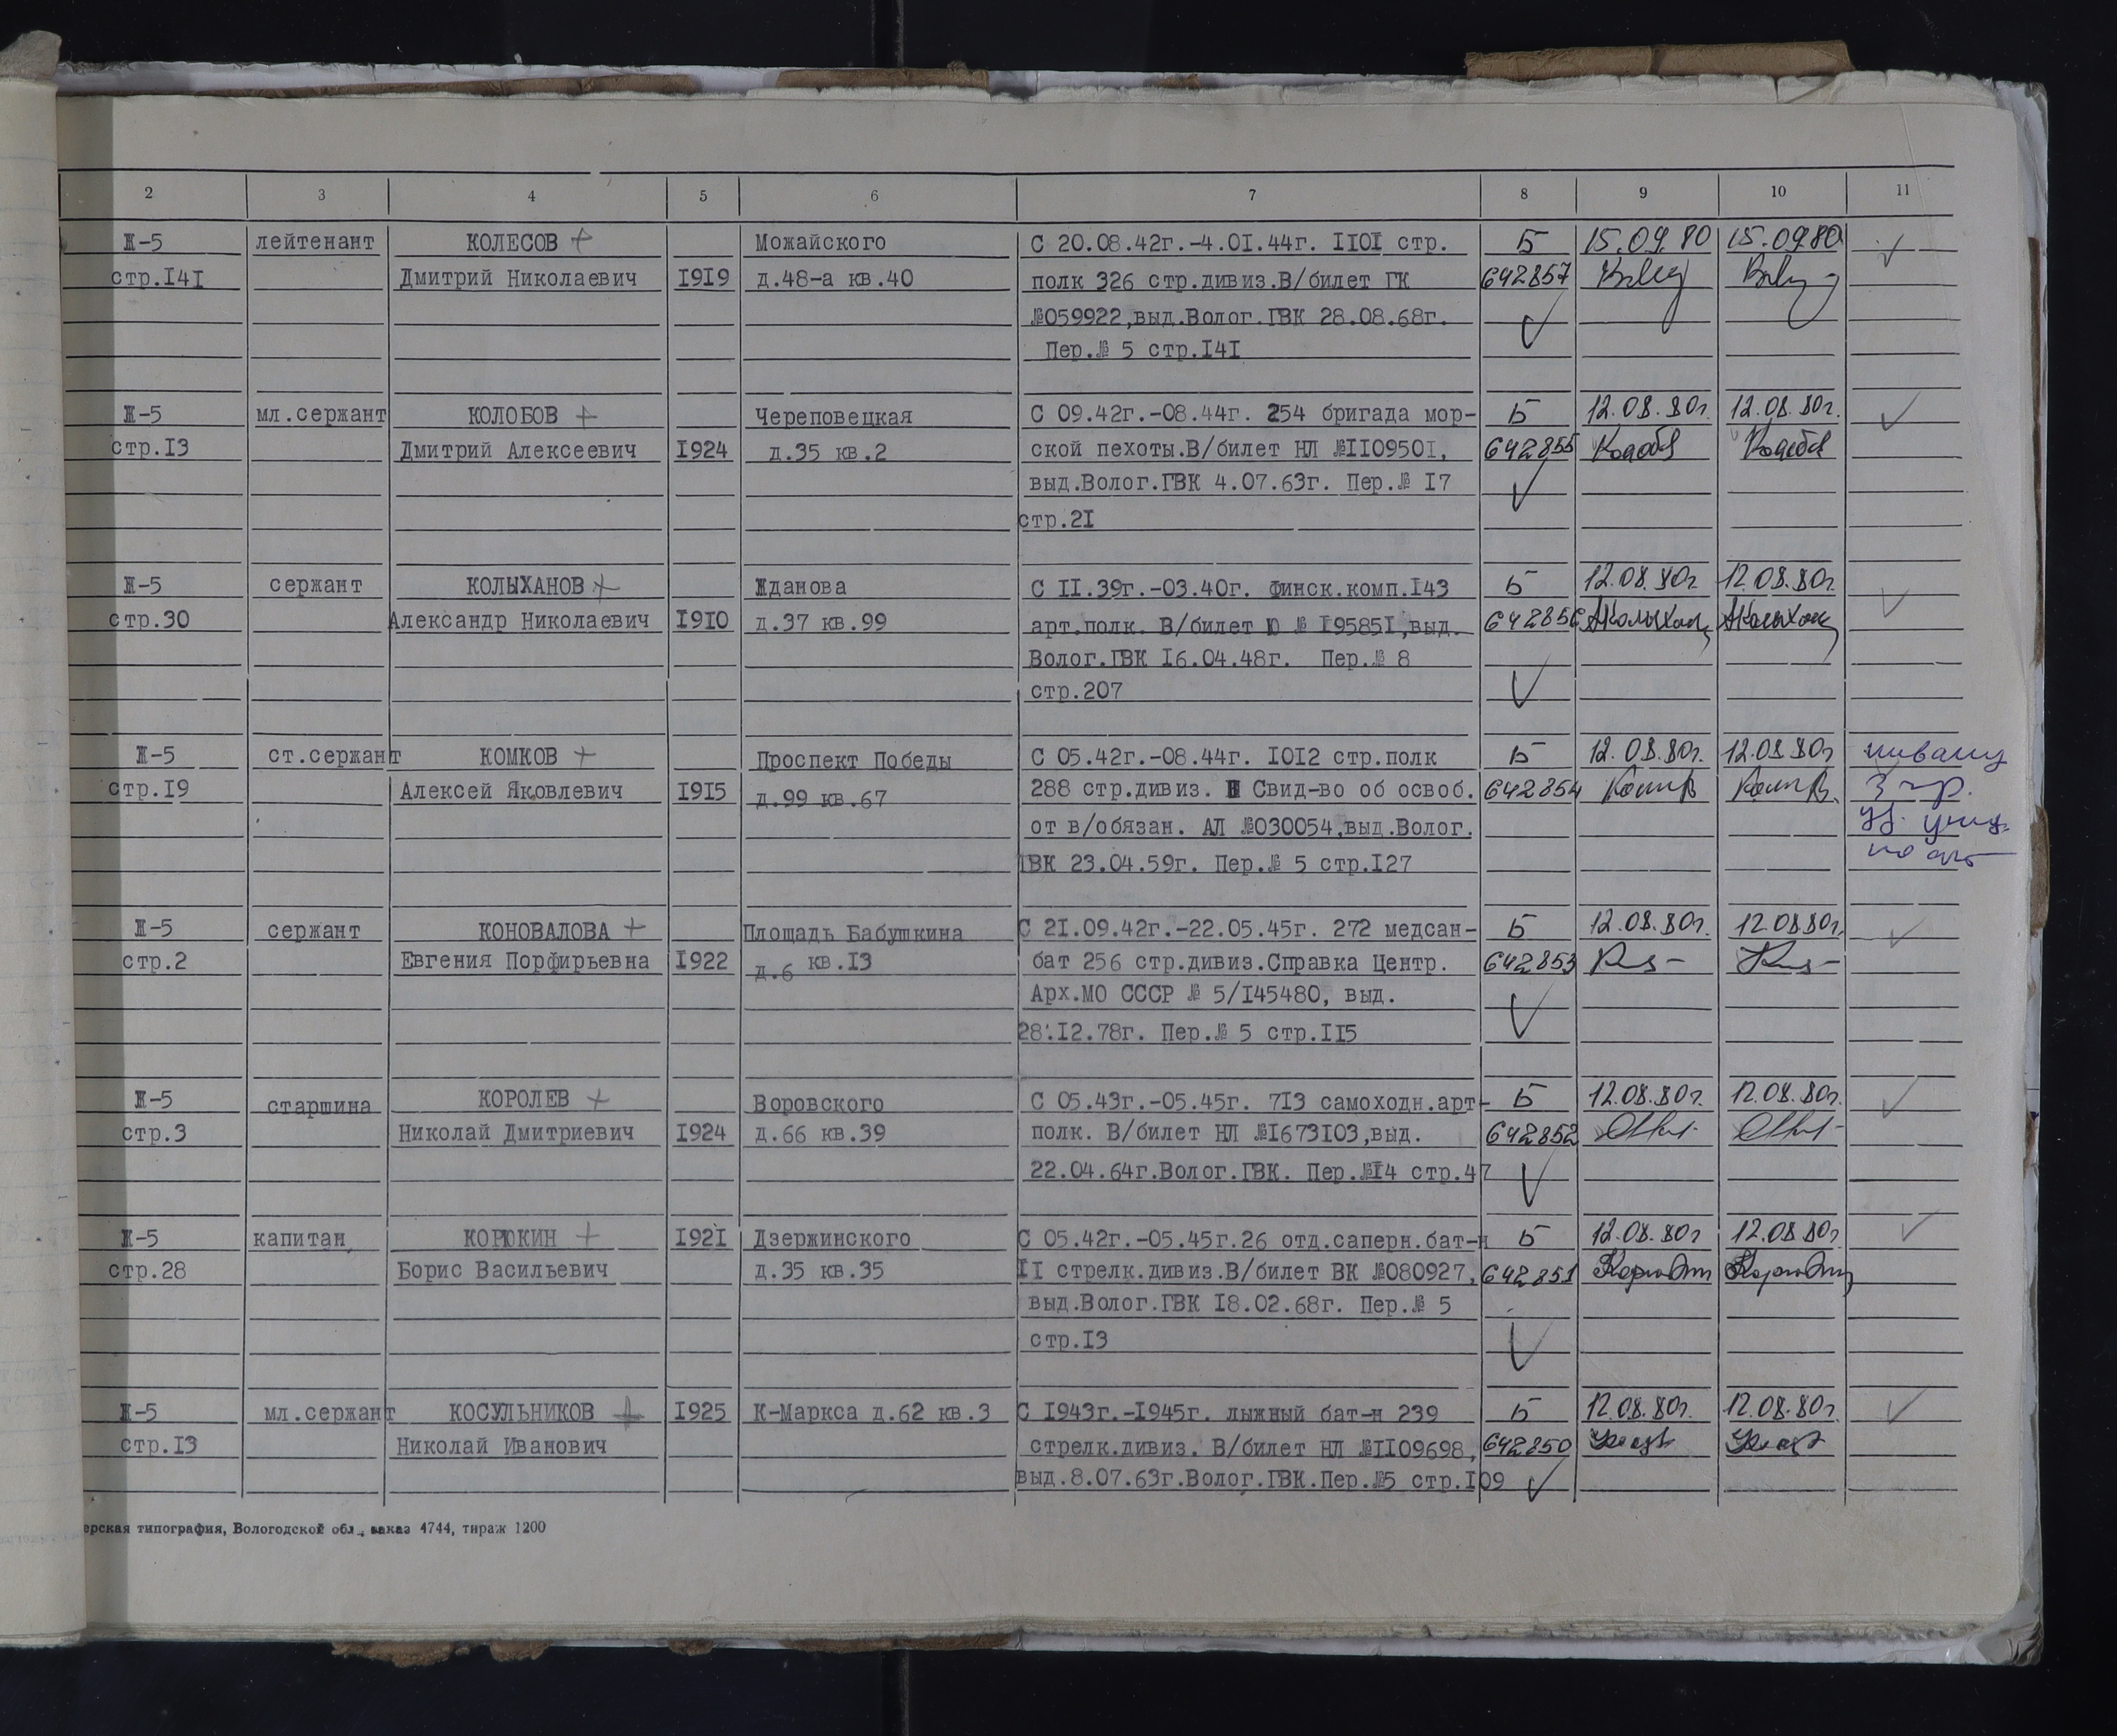 2 3 4 5 6 7 8 9 10 11
Ж-5 лейтенант КОЛЕСОВ + Можайского С 20.08.42г.-4.01.44г. 1101 стр. Б 15.09.80 15.09.80
стр.141 Дмитрий Николаевич 1919 д.48-а кв.40 полк 326 стр.дивиз.В/билет ГК 642857
№059922,выд.Волог.ГВК 28.08.68г.
Пер.№ 5 стр.141
Ж-5 мл.сержант КОЛОБОВ + Череповецкая С 09.42г.-08.44г. 254 бригада мор- Б 12.08.80г. 12.08.80г.
стр.13 Дмитрий Алексеевич 1924 д.35 кв.2 ской пехоты.В/билет НЛ №1109501, 642855
выд.Волог.ГВК 4.07.63г. Пер.№ 17
стр.21
Ж-5 сержант КОЛЫХАНОВ + Жданова С 11.39г.-03.40г. финск.комп.143 Б 12.08.80г 12.08.80г.
стр.30 Александр Николаевич 1910 д.37 кв.99 арт.полк. В/билет Ю № 195851,выд. 642856
Волог.ГВК 16.04.48г. Пер.№ 8
стр.207
Ж-5 ст.сержант КОМКОВ + Проспект Победы С 05.42г.-08.44г. 1012 стр.полк Б 12.08.80г. 12.08.80г
стр.19 Алексей Яковлевич 1915 д.99 кв.67 288 стр.дивиз. Свид-во об освоб. 642854 3 гр.
от в/обязан. АЛ №030054,выд.Волог.
ГВК 23.04.59г. Пер.№ 5 стр.127
Ж-5 сержант КОНОВАЛОВА + Площадь Бабушкина С 21.09.42г.-22.05.45г. 272 медсан- Б 12.08.80г. 12.08.80г.
стр.2 Евгения Порфирьевна 1922 д.6 кв.13 бат 256 стр.дивиз.Справка Центр. 642853
Арх.МО СССР № 5/145480, выд.
28.12.78г. Пер.№ 5 стр.115
Ж-5 старшина КОРОЛЕВ + Воровского С 05.43г.-05.45г. 713 самоходн.арт- Б 12.08.80г. 12.08.80г.
стр.3 Николай Дмитриевич 1924 д.66 кв.39 полк. В/билет НЛ №1673103,выд. 642852
22.04.64г.Волог.ГВК. Пер.№14 стр.47
Ж-5 капитан КОРЮКИН + 1921 Дзержинского С 05.42г.-05.45г.26 отд.саперн.бат-н Б 12.08.80г 12.08.80г
стр.28 Борис Васильевич д.35 кв.35 11 стрелк.дивиз.В/билет ВК №080927, 642851
выд.Волог.ГВК 18.02.68г. Пер.№ 5
стр.13
Ж-5 мл.сержант КОСУЛЬНИКОВ + 1925 К-Маркса д.62 кв.3 С 1943г.-1945г. лыжный бат-н 239 Б 12.08.80г. 12.08.80г.
стр.13 Николай Иванович стрелк.дивиз. В/билет НЛ №1109698, 642850
выд.8.07.63г.Волог.ГВК.Пер.№5 стр.109
ерская типография, Вологодской обл., заказ 4744, тираж 1200